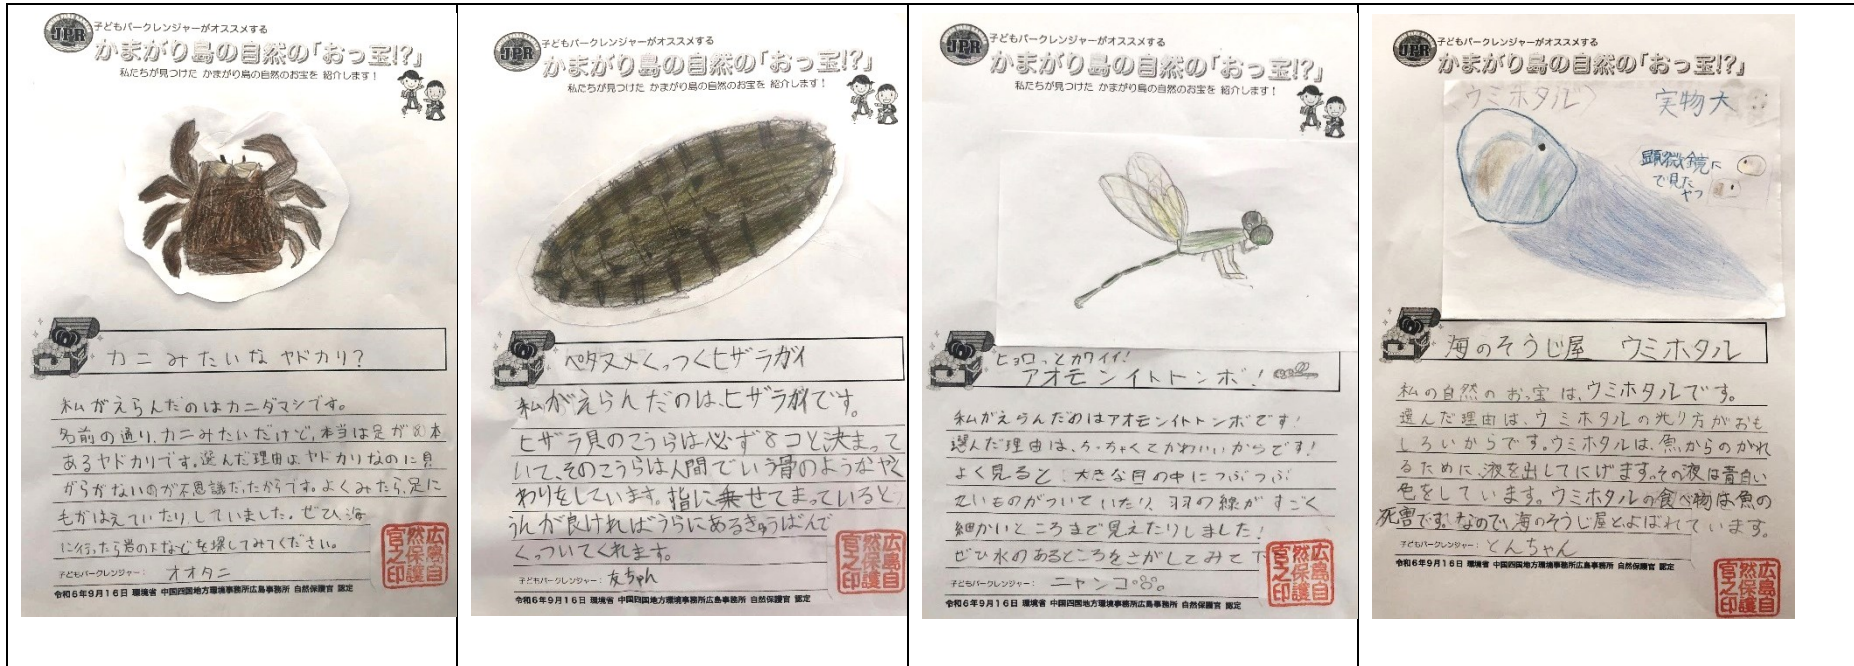 JPR
子どもパークレンジャーがオススメする
かまがり島の自然の「おっ宝!?」
私たちが見つけた かまがり島の自然のお宝を 紹介します!
カニみたいな ヤドカリ?
私がえらんだのはカニダマシです。
名前の通り、カニみたいだけど、本当は足が8本
あるヤドカリです。選んだ理由は、ヤドカリなのに貝
がらがないのが不思議だったからです。よくみたら、足に
毛がはえていたりしていました。ぜひ、海
に行ったら岩の下などを探してみてください。
子どもパークレンジャー: オオタニ
令和6年9月16日 環境省 中国四国地方環境事務所広島事務所 自然保護官 認定
広島自然保護官之印
JPR
子どもパークレンジャーがオススメする
かまがり島の自然の「おっ宝!?」
私たちが見つけた かまがり島の自然のお宝を 紹介します!
ペタヌメくっつくヒザラガイ
私がえらんだのは、ヒザラガイです。
ヒザラ貝のこうらは必ず8コと決まって
いて、そのこうらは人間でいう骨のようなやく
わりをしています。指に乗せてまっていると
うんが良ければうらにあるきゅうばんで
くっついてくれます。
子どもパークレンジャー: 友ちゃん
令和6年9月16日 環境省 中国四国地方環境事務所広島事務所 自然保護官 認定
広島自然保護官之印
JPR
子どもパークレンジャーがオススメする
かまがり島の自然の「おっ宝!?」
私たちが見つけた かまがり島の自然のお宝を 紹介します!
ヒョロっとカワイイ!
アオモンイトトンボ!
私がえらんだのはアオモンイトトンボです!
選んだ理由は、ちっちゃくてかわいいからです!
よく見ると、大きな目の中につぶつぶ
ものがついていたり、羽の線がすごく
細かいところまで見えたりしました!
ぜひ水のあるところをさがしてみて下
子どもパークレンジャー: ニャンコ
令和6年9月16日 環境省 中国四国地方環境事務所広島事務所 自然保護官 認定
広島自然保護官之印
JPR
子どもパークレンジャーがオススメする
かまがり島の自然の「おっ宝!?」
ウミホタル
実物大
顕微鏡に
で見た
やつ
海のそうじ屋 ウミホタル
私の自然のお宝は、ウミホタルです。
選んだ理由は、ウミホタルの光り方がおも
しろいからです。ウミホタルは、魚からのがれ
るために、液を出してにげます。その液は青白い
色をしています。ウミホタルの食べ物は魚の
死害です。なので、海のそうじ屋とよばれています。
子どもパークレンジャー: とんちゃん
令和6年9月16日 環境省 中国四国地方環境事務所広島事務所 自然保護官 認定
広島自然保護官之印